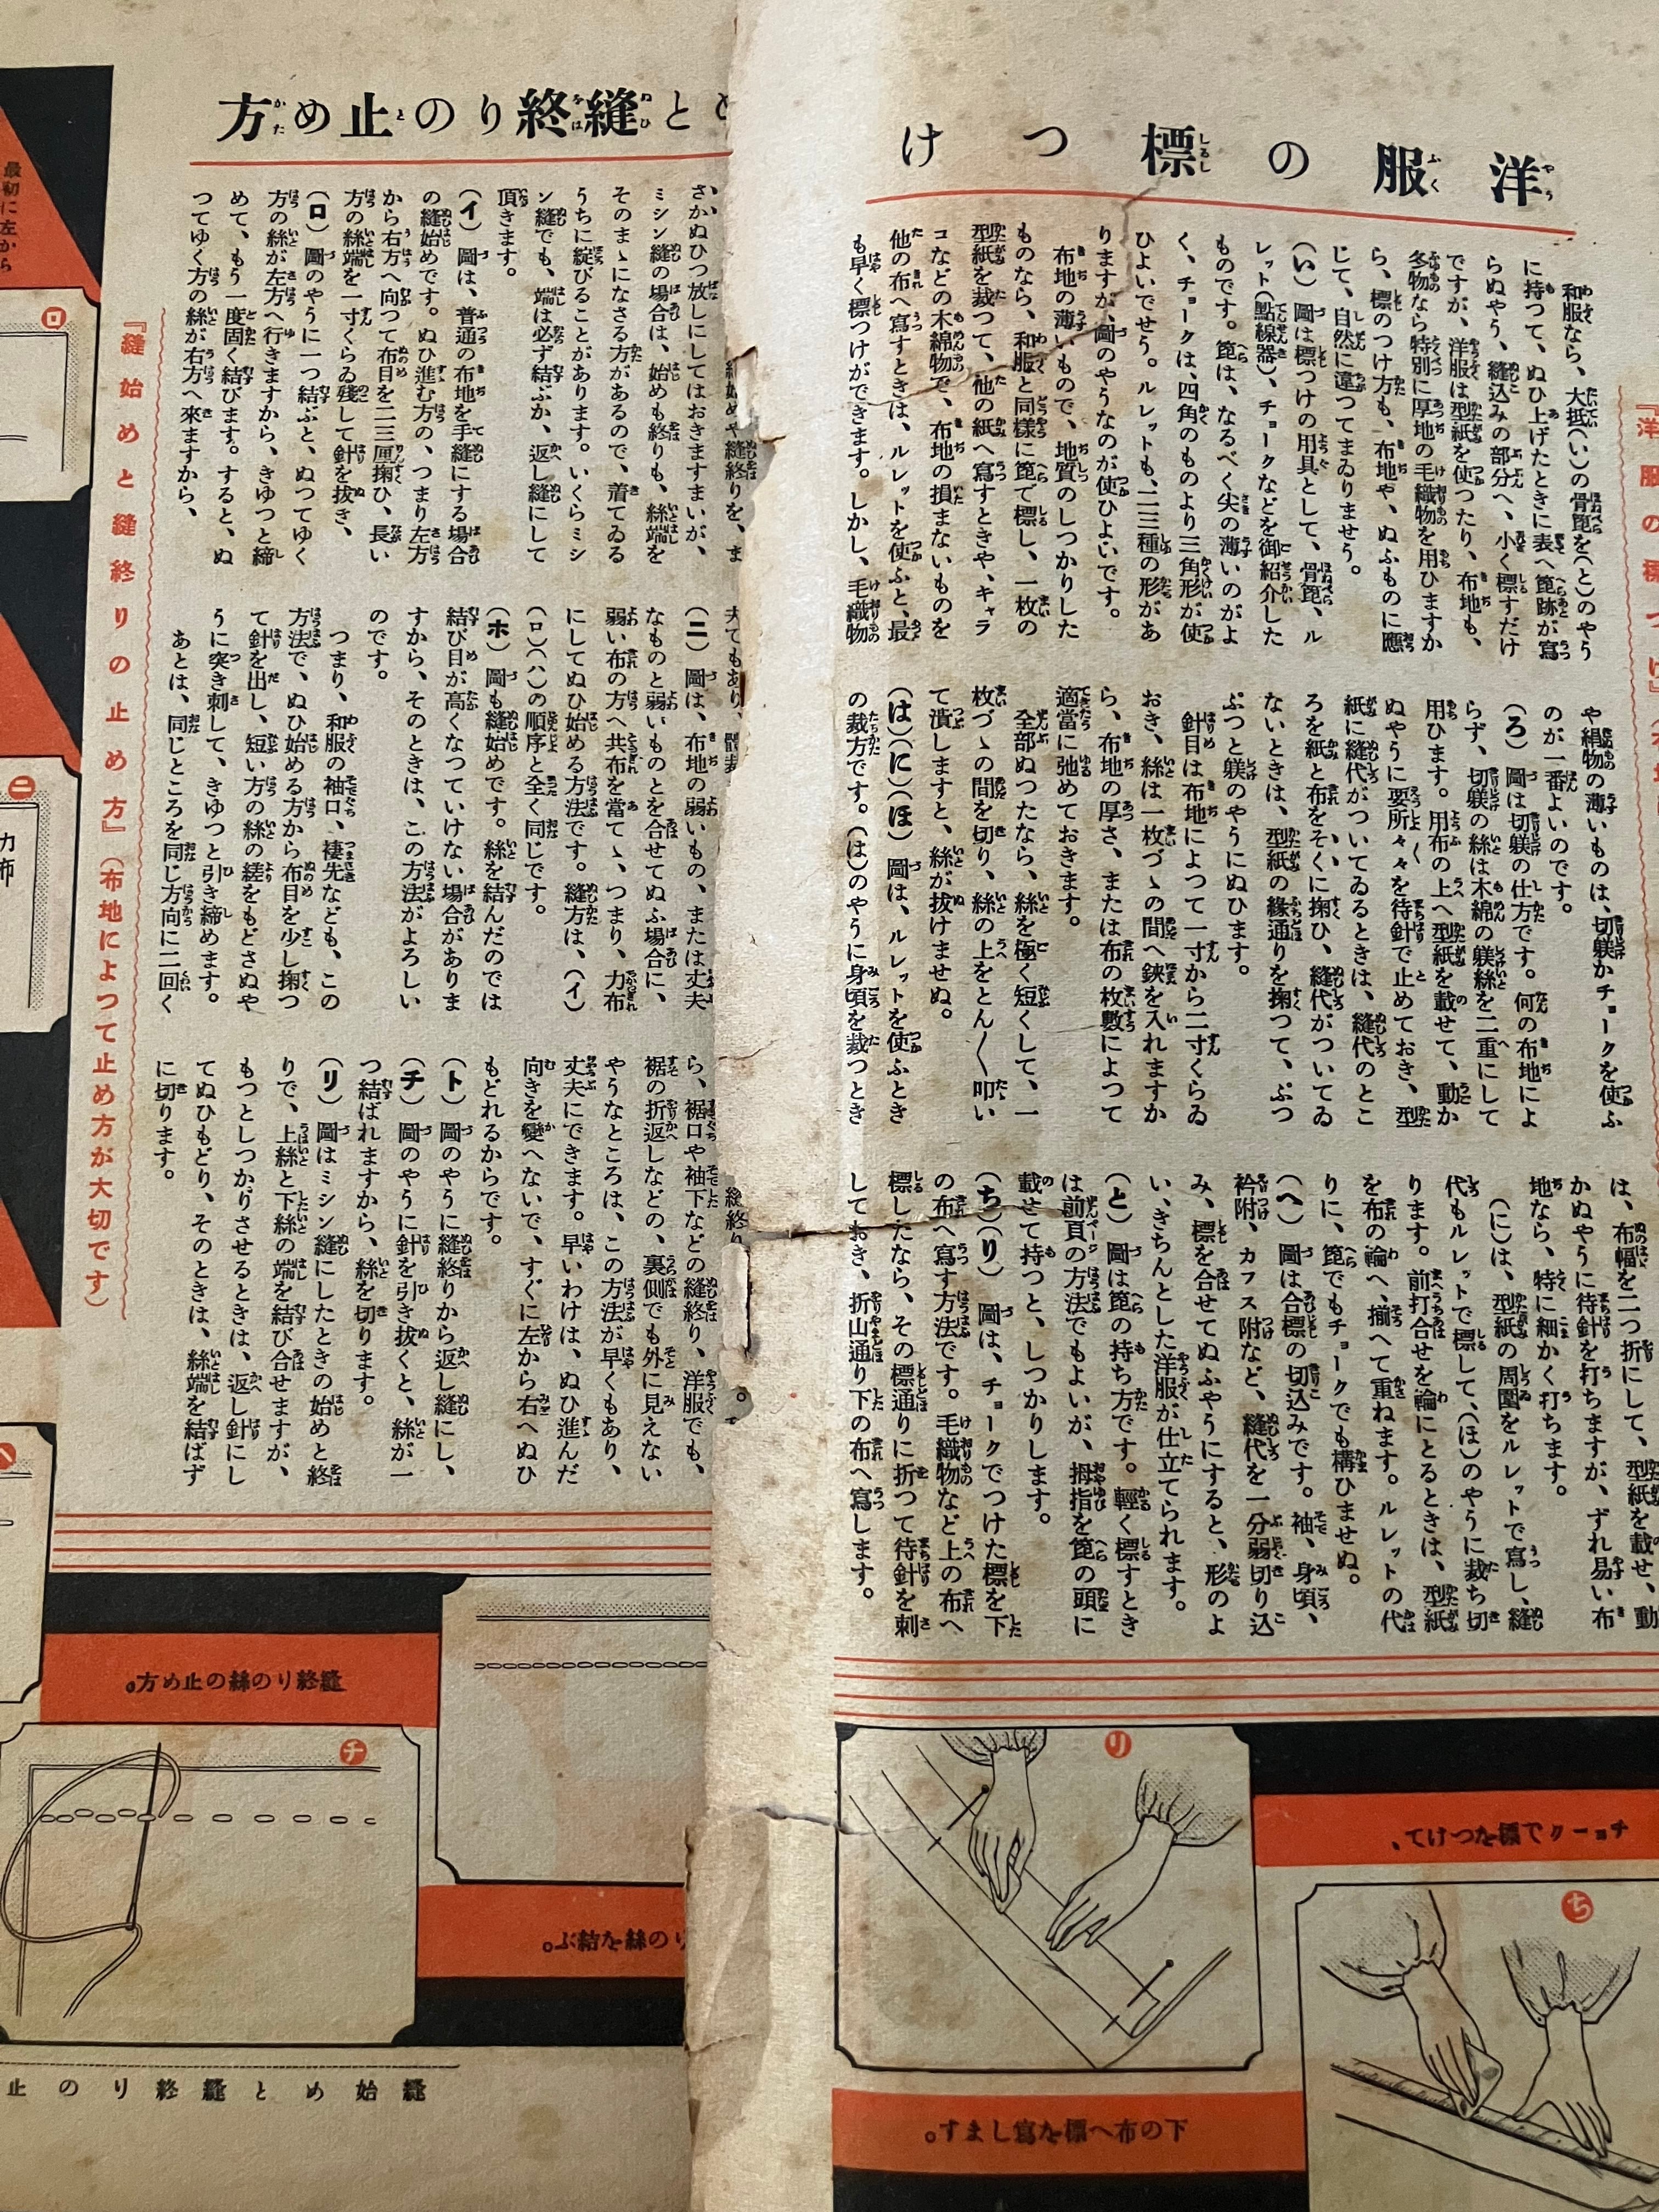 洋服の標つけ
和服なら、大抵(い)の骨箆を(と)のやう
に持つて、ぬひ上げたときに表へ箆跡が寫
らぬやう、縫込みの部分へ、小く標すだけ
ですが、洋服は型紙を使つたり、布地も、
冬物なら特別に厚地の毛織物を用ひますか
ら、標のつけ方も、布地や、ぬふものに應
じて、自然に違つてまゐりませう。
(い)圖は標つけの用具として、骨箆、ル
レット(點線器)、チョークなどを御紹介した
ものです。箆は、なるべく尖の薄いのがよ
く、チョークは、四角のものより三角形が使
ひよいでせう。ルレットも、二三種の形があ
りますが、圖のやうなのが使ひよいです。
布地の薄いもので、地質のしつかりした
ものなら、和服と同樣に箆で標し、一枚の
型紙を裁つて、他の紙へ寫すときや、キャラ
コなどの木綿物で、布地の損まないものを
他の布へ寫すときは、ルレットを使ふと、最
も早く標つけができます。しかし、毛織物
や絹物の薄いものは、切躾かチョークを使ふ
のが一番よいのです。
(ろ)圖は切躾の仕方です。何の布地によ
らず、切躾の絲は木綿の躾絲を二重にして
用ひます。用布の上へ型紙を載せて、動か
ぬやうに要所々々を待針で止めておき、型
紙に縫代がついてゐるときは、縫代のとこ
ろを紙と布をそくに掬ひ、縫代がついてゐ
ないときは、型紙の緣通りを掬つて、ぷつ
ぷつと躾のやうにぬひます。
針目は布地によつて一寸から二寸くらゐ
おき、絲は一枚づゝの間へ鋏を入れますか
ら、布地の厚さ、または布の枚數によつて
適當に弛めておきます。
全部ぬつたなら、絲を極く短くして、一
枚づゝの間を切り、絲の上をとん〱叩い
て潰しますと、絲が拔けませぬ。
(は)(に)(ほ)圖は、ルレットを使ふとき
の裁方です。(は)のやうに身頃を裁つとき
は、布幅を二つ折にして、型紙を載せ、動
かぬやうに待針を打ちますが、ずれ易い布
地なら、特に細かく打ちます。
(に)は、型紙の周圍をルレットで寫し、縫
代もルレットで標して、(ほ)のやうに裁ち切
ります。前打合せを輪にとるときは、型紙
を布の輪へ、揃へて重ねます。ルレットの代
りに、箆でもチョークでも構ひませぬ。
(へ)圖は合標の切込みです。袖、身頃、
衿附、カフス附など、縫代を一分弱切り込
み、標を合せてぬふやうにすると、形のよ
い、きちんとした洋服が仕立てられます。
(と)圖は箆の持ち方です。輕く標すとき
は前頁の方法でもよいが、拇指を箆の頭に
載せて持つと、しつかりします。
(ち)(り)圖は、チョークでつけた標を下
の布へ寫す方法です。毛織物など上の布へ
標したなら、その標通りに折つて待針を刺
しておき、折山通り下の布へ寫します。
り
チョークで標をつけて、
ち
下の布へ標を寫します。
と縫終りの止め方
縫始めや縫終りを、ま
さかぬひつ放しにしてはおきますまいが、
ミシン縫の場合は、始めも終りも、絲端を
そのまゝになさる方があるので、着てゐる
うちに綻びることがあります。いくらミシ
ン縫でも、端は必ず結ぶか、返し縫にして
頂きます。
(イ)圖は、普通の布地を手縫にする場合
の縫始めです。ぬひ進む方の、つまり左方
から右方へ向つて布目を二三厘掬ひ、長い
方の絲端を一寸くらゐ殘して針を拔き、
(ロ)圖のやうに一つ結ぶと、ぬつてゆく
方の絲が左方へ行きますから、きゆつと締
めて、もう一度固く結びます。すると、ぬ
つてゆく方の絲が右方へ來ますから、
(ニ)圖は、布地の弱いもの、または丈夫
なものと弱いものとを合せてぬふ場合に、
弱い布の方へ共布を當てゝ、つまり、力布
にしてぬひ始める方法です。縫方は、(イ)
(ロ)(ハ)の順序と全く同じです。
(ホ)圖も縫始めです。絲を結んだのでは
結び目が高くなつていけない場合がありま
すから、そのときは、この方法がよろしい
のです。
つまり、和服の袖口、褄先なども、この
方法で、ぬひ始める方から布目を少し掬つ
て針を出し、短い方の絲の縒をもどさぬや
うに突き刺して、きゆつと引き締めます。
あとは、同じところを同じ方向に二回く
ら、裾口や袖下などの縫終り、洋服でも、
裾の折返しなどの、裏側でも外に見えない
やうなところは、この方法が早くもあり、
丈夫にできます。早いわけは、ぬひ進んだ
向きを變へないで、すぐに左から右へぬひ
もどれるからです。
(ト)圖のやうに縫終りから返し縫にし、
(チ)圖のやうに針を引き拔くと、絲が一
つ結ばれますから、絲を切ります。
(リ)圖はミシン縫にしたときの始めと終
りで、上絲と下絲の端を結び合せますが、
もつとしつかりさせるときは、返し針にし
てぬひもどり、そのときは、絲端を結ばず
に切ります。
『縫始めと縫終りの止め方』(布地によつて止め方が大切です)
最初に左から
ロ
ニ
力布
縫終りの絲の止め方。
チ
りの絲を結ぶ。
縫始めと縫終りの止